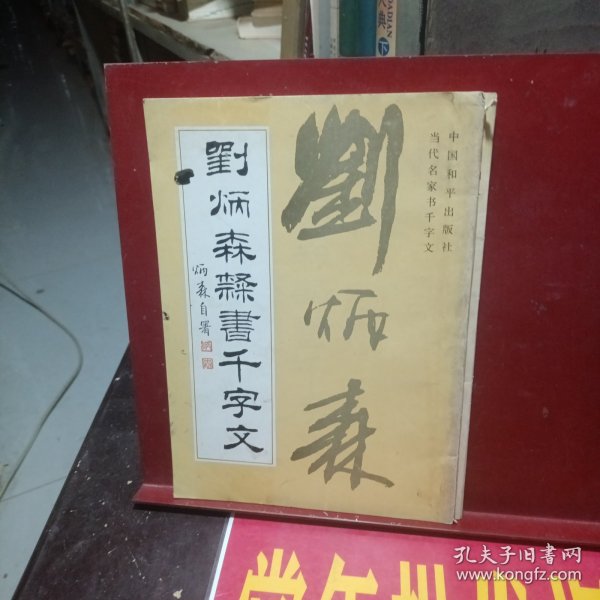 中国和平出版社
当代名家书千字文
劉炳森
劉炳森隸書千字文
炳森自署
孔夫子旧书网
www.kongfz.com